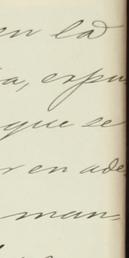 en la
a, espu
que se
r en ade
man